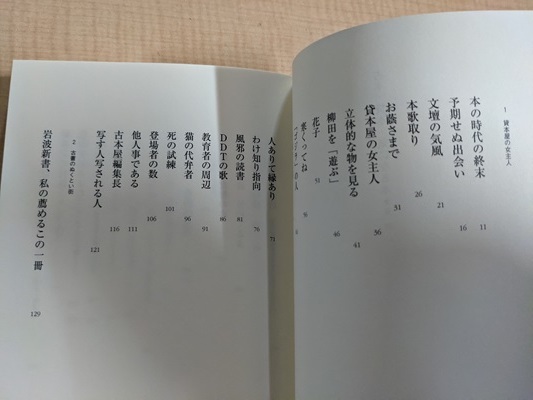 1 貸本屋の女主人
本の時代の終末 11
予期せぬ出会い 16
文壇の気風 21
本歌取り 26
お蔭さまで 31
貸本屋の女主人 36
立体的な物を見る 41
柳田を「遊ぶ」 46
花子 51
人ありて縁あり 71
わけ知り指向 76
風邪の読書 81
DDTの歌 86
教育者の周辺 91
猫の代弁者 96
死の試練 101
登場者の数 106
他人事である 111
古本屋編集長 116
写す人写される人 121
2 古書のぬくとい街
岩波新書、私の薦めるこの一冊 129